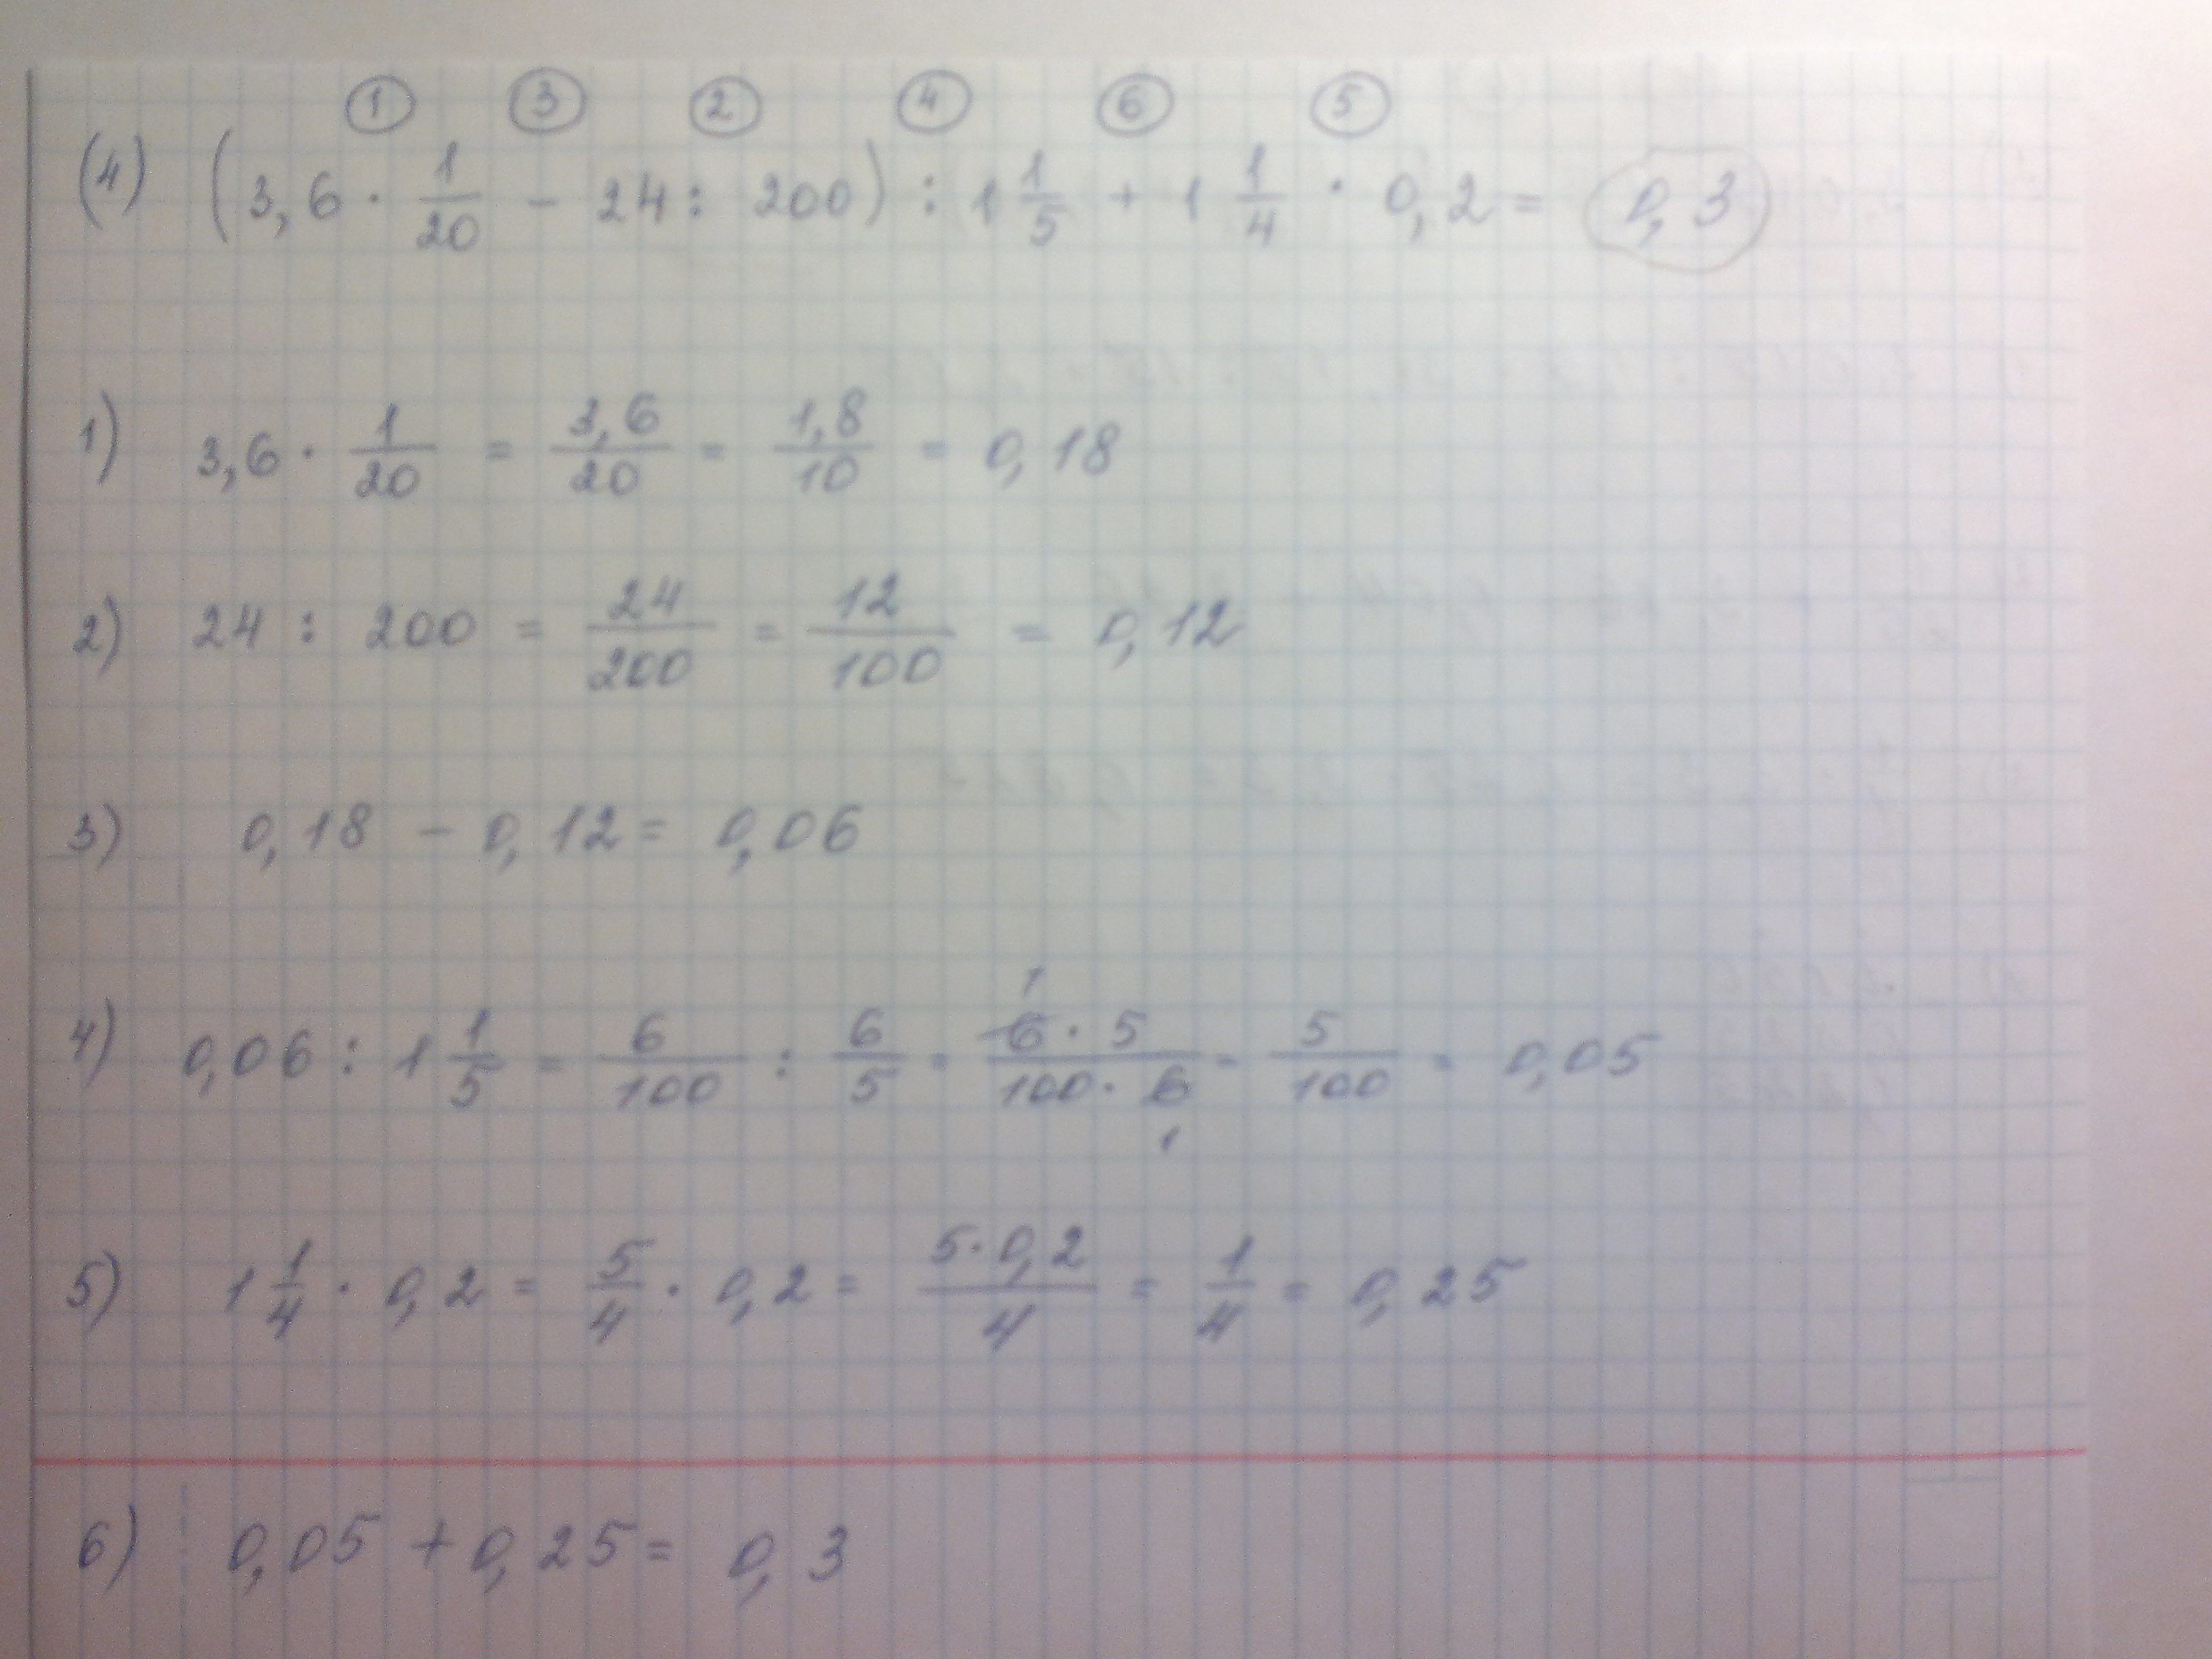 ① ③ ② ④ ⑥ ⑤
(4) (3,6 · 1/20 - 24 : 200) : 1 1/5 + 1 1/4 · 0,2 = 0,3
1) 3,6 · 1/20 = 3,6/20 = 1,8/10 = 0,18
2) 24 : 200 = 24/200 = 12/100 = 0,12
3) 0,18 - 0,12 = 0,06
4) 0,06 : 1 1/5 = 6/100 : 6/5 = 6 1 · 5/100 · 6 1 = 5/100 = 0,05
5) 1 1/4 · 0,2 = 5/4 · 0,2 = 5 · 0,2/4 = 1/4 = 0,25
6) 0,05 + 0,25 = 0,3